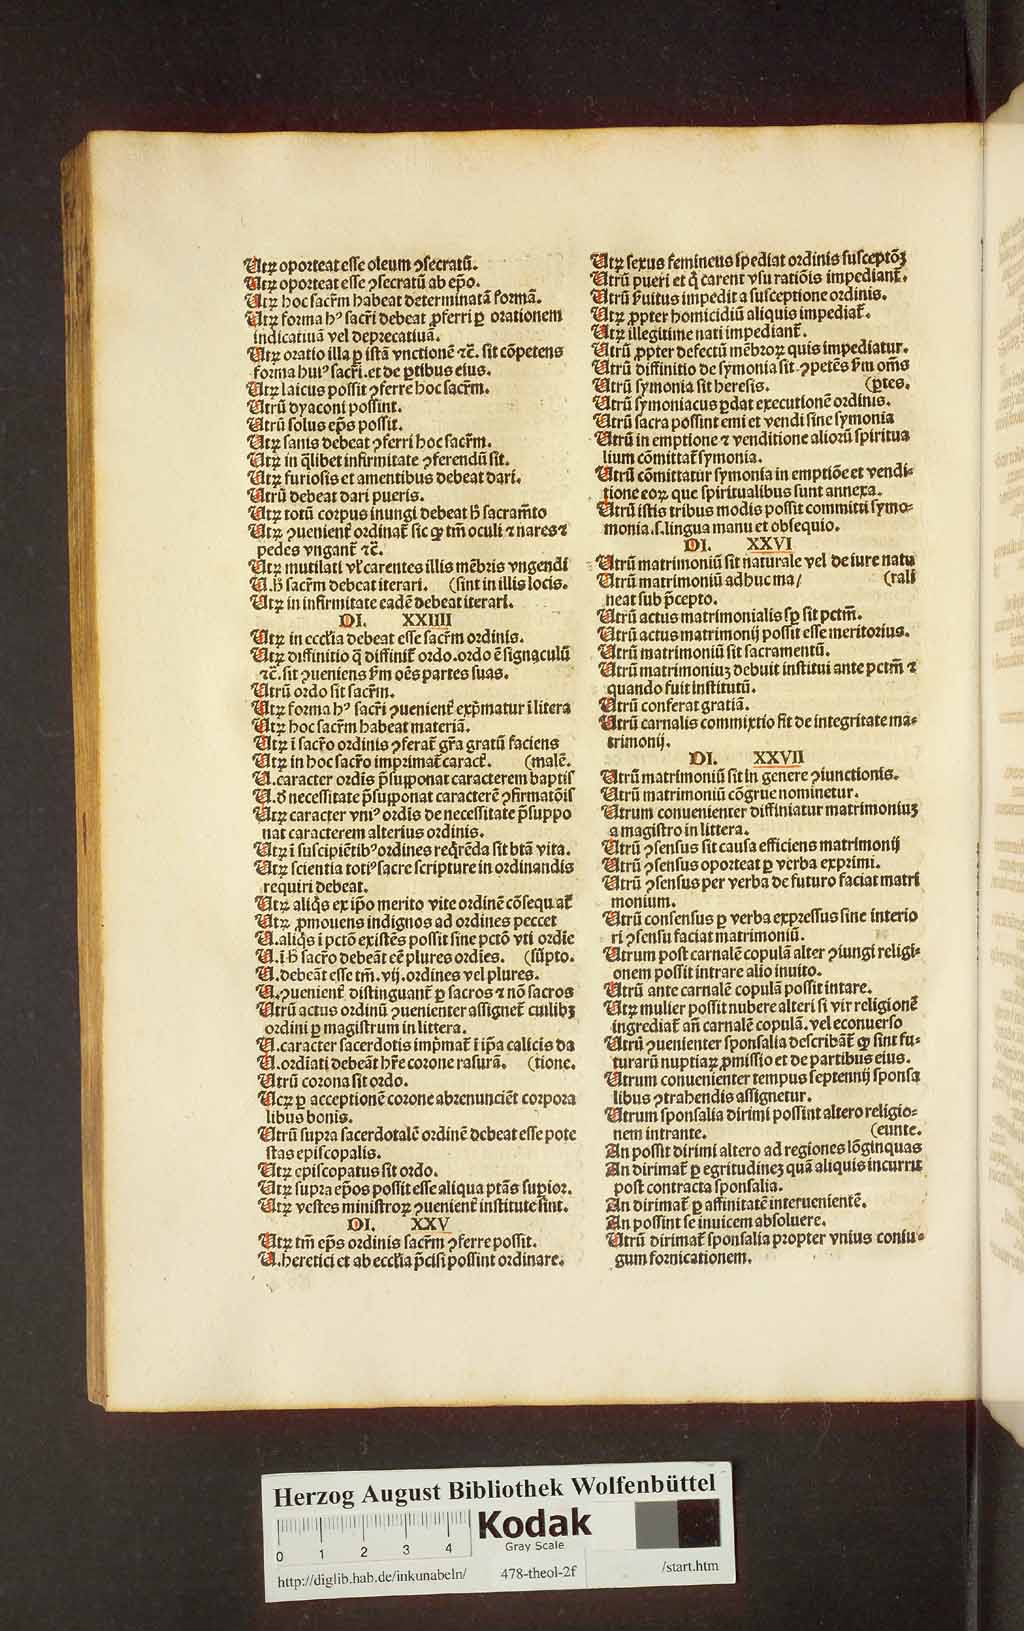 Utrꝫ oporteat esse oleum ꝯsecratū.
Utrꝫ oporteat esse ꝯsecratū ab ep̄o.
Utrꝫ hoc sacr̄m habeat determinatā formā.
Utrꝫ forma hꝰ sacr̄i debeat ꝓferri ꝑ orationem
indicatiuā vel deprecatiuā.
Utrꝫ oratio illa ꝑ istā vnctionē ⁊c̄. sit cōpetens
forma huiꝰ sacr̄i. et de ꝑtibus eius.
Utrꝫ laicus possit ꝯferre hoc sacr̄m.
Utrū dyaconi possint.
Utrū solus ep̄s possit.
Utrꝫ sanis debeat ꝯferri hoc sacr̄m.
Utrꝫ in q̄libet infirmitate ꝯferendū sit.
Utrꝫ furiosis et amentibus debeat dari.
Utrū debeat dari pueris.
Utrꝫ totū corpus inungi debeat h̄ sacram̄to
Utrꝫ ꝯuenient̄ ordinat̄ sic ꝙ tm̄ oculi ⁊ nares ⁊
pedes vngant̄ ⁊c̄.
Utrꝫ mutilati vl̄ carentes illis mēbris vngendi
U. h̄ sacr̄m debeat iterari. (sint in illis locis.
Utrꝫ in infirmitate eadē debeat iterari.
DI. XXIIII
Utrꝫ in eccl̄ia debeat esse sacr̄m ordinis.
Utrꝫ diffinitio q̄ diffinit̄ ordo. ordo ē signaculū
⁊c̄. sit ꝯueniens ẜm oēs partes suas.
Utrū ordo sit sacr̄m.
Utrꝫ forma hꝰ sacr̄i ꝯuenient̄ exp̄matur ī litera
Utrꝫ hoc sacr̄m habeat materiā.
Utrꝫ ī sacr̄o ordinis ꝯferat̄ gr̄a gratū faciens
Utrꝫ in hoc sacr̄o imprimat̄ caract̄. (malē.
U. caracter ordīs p̄supponat caracterem baptis
U. d̄ necessitate p̄supponat caracterē ꝯfirmatōis
Utrꝫ caracter vniꝰ ordīs de necessitate p̄suppo
nat caracterem alterius ordinis.
Utrꝫ ī suscipiētibꝰ ordines reqͥrēda sit btā vita.
Utrꝫ scientia totiꝰ sacre scripture in ordinandis
requiri debeat.
Utrꝫ aliqͥs ex ip̄o merito vite ordinē cōsequat̄
Utrꝫ ꝓmouens indignos ad ordines peccet
U. aliqͥs ī pctō existēs possit sine pctō vti ordīe
U. ī h̄ sacr̄o debeāt eē plures ordīes. (sūpto.
U. debeāt esse tm̄. vij. ordines vel plures.
U. ꝯuenient̄ distinguant̄ ꝑ sacros ⁊ nō sacros
Utrū actus ordinū ꝯuenienter assignet̄ cuilibꝫ
ordini ꝑ magistrum in littera.
U. caracter sacerdotis imp̄mat̄ ī ip̄a calicis da
U. ordīati debeāt hr̄e corone rasurā. (tione.
Utrū corona sit ordo.
Utrꝫ ꝑ acceptionē corone abrenunciēt corpora
libus bonis.
Utrū supra sacerdotalē ordinē debeat esse pote
stas episcopalis.
Utrꝫ episcopatus sit ordo.
Utrꝫ supra ep̄os possit esse aliqua ptās supior.
Utrꝫ vestes ministroꝝ ꝯuenient̄ institute sint.
DI. XXV
Utrꝫ tm̄ ep̄s ordinis sacr̄m ꝯferre possit.
U. heretici et ab eccl̄ia p̄cisi possint ordinare.
Utrꝫ sexus femineus īpediat ordinis susceptōꝫ
Utrū pueri et qͥ carent vsu ratiōis impediant̄.
Utrū ẜuitus impedit a susceptione ordinis.
Utrꝫ ꝓpter homicidiū aliquis impediat̄.
Utrꝫ illegitime nati impediant̄.
Utrū ꝓpter defectū mēbroꝝ quis impediatur.
Utrū diffinitio de symonia sit ꝯpetēs ẜm om̄s
Utrū symonia sit heresis. (ꝑtes.
Utrū symoniacus ꝑdat executionē ordinis.
Utrū sacra possint emi et vendi sine symonia
Utrū in emptione ⁊ venditione aliorū spiritua
lium cōmittat̄ symonia.
Utrū cōmittatur symonia in emptiōe et vendi-
tione eoꝝ que spiritualibus sunt annexa.
Utrū istis tribus modis possit committi symo-
monia. s. lingua manu et obsequio.
DI. XXVI
Utrū matrimoniū sit naturale vel de iure natu
Utrū matrimoniū adhuc ma/ (rali
neat sub p̄cepto.
Utrū actus matrimonialis sꝑ sit pctm̄.
Utrū actus matrimonij possit esse meritorius.
Utrū matrimoniū sit sacramentū.
Utrū matrimoniuꝫ debuit institui ante pctm̄ ⁊
quando fuit institutū.
Utrū conferat gratiā.
Utrū carnalis commixtio sit de integritate ma-
trimonij.
DI. XXVII
Utrū matrimoniū sit in genere ꝯiunctionis.
Utrū matrimoniū cōgrue nominetur.
Utrum conuenienter diffiniatur matrimoniuꝫ
a magistro in littera.
Utrū ꝯsensus sit causa efficiens matrimonij
Utrū ꝯsensus oporteat ꝑ verba exprimi.
Utrū ꝯsensus per verba de futuro faciat matri
monium.
Utrū consensus ꝑ verba expressus sine interio
ri ꝯsensu faciat matrimoniū.
Utrum post carnalē copulā alter ꝯiungi religi-
onem possit intrare alio inuito.
Utrū ante carnalē copulā possit intare.
Utrꝫ mulier possit nubere alteri si vir religionē
ingrediat̄ an̄ carnalē copulā. vel econuerso
Utrū ꝯuenienter sponsalia describāt̄ ꝙ sint fu-
turarū nuptiaꝝ ꝓmissio et de partibus eius.
Utrum conuenienter tempus septennij sponsa
libus ꝯtrahendis assignetur.
Utrum sponsalia dirimi possint altero religio-
nem intrante. (eunte.
An possit dirimi altero ad regiones lōginquas
An dirimat̄ ꝑ egritudineꝫ quā aliquis incurrit
post contracta sponsalia.
An dirimat̄ ꝑ affinitatē interuenientē.
An possint se inuicem absoluere.
Utrū dirimat̄ sponsalia propter vnius coniu-
gum fornicationem.
Herzog August Bibliothek Wolfenbüttel
Kodak
Gray Scale
0 1 2 3 4
http://diglib.hab.de/inkunabeln/ 478-theol-2f /start.htm